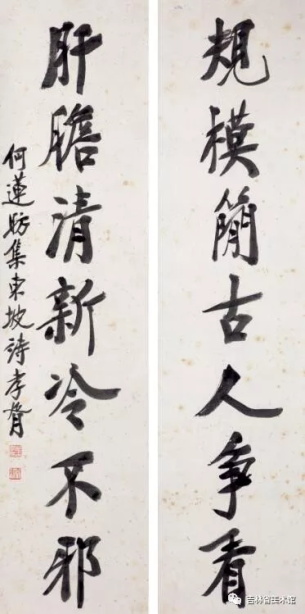 規模簡古人爭看
肝膽清新冷不邪
何蓮舫集東坡詩孝胥
吉林省美术馆